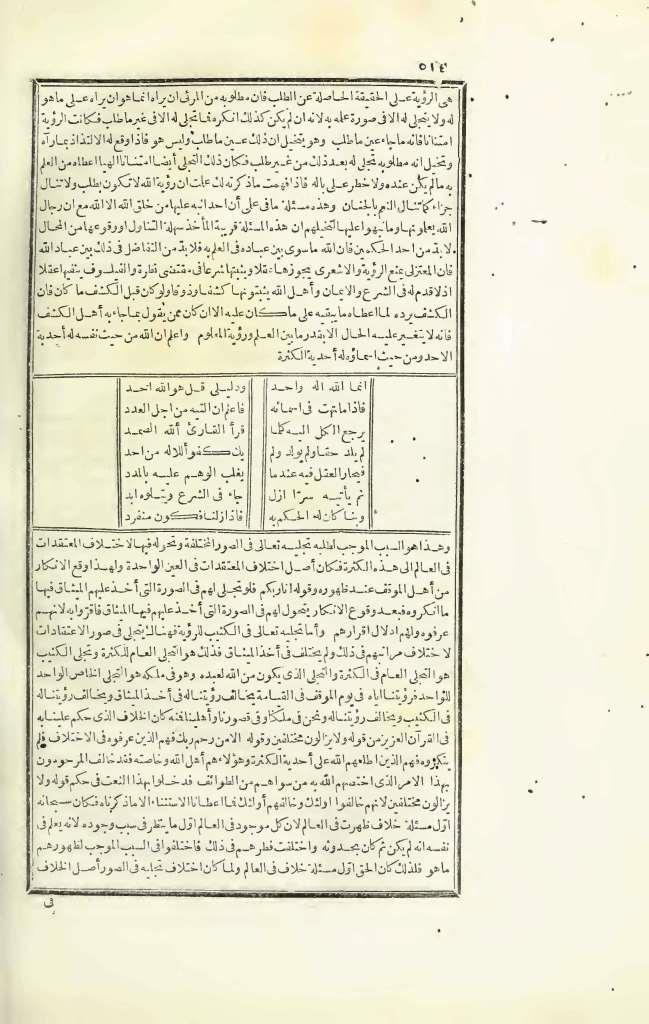 ٥١٤
هى الرؤية على الحقيقة الحاصلة عن الطلب فان مطلوبه من المرئى ان يراه انما هو ان يراه على ما هو
له ولا يتجلى له الا فى صورة علمه به لانه ان لم يكن كذلك انكره فما تجلى له الا فى غير ما طلب فكانت الرؤية
امتنانا فانه ما جاءه عين ما طلب وهو يتخيل ان ذلك عين ما طلب وليس هو فاذا وقع له الالتذاذ بما رآه
وتخيل انه مطلوبه تجلى له بعد ذلك من غير طلب فكان ذلك التجلى أيضا امتنانا الهيا اعطاه من العلم
به ما لم يكن عنده ولا خطر على باله فاذا فهمت ما ذكرته لك علمت ان رؤية الله لا تكون بطلب ولا تنال
جزاء كما تنال النعم بالجنان وهذه مسئلة ما فى علمى أن احدا نبه عليها من خلق الله الا الله مع ان رجال
الله يعلمونها وما نبهوا عليها لتخيلهم ان هذه المسئلة قريبة المأخذ سهلة التناول او وقوعها من المحال
لا بد من احد الحكمين فان الله ما سوى بين عباده فى العلم به فلا بد من التفاضل فى ذلك بين عباد الله
فان المعتزلى يمنع الرؤية والاشعرى يجوزها عقلا ويثبتها شرعا فى مقتضى نظره والفيلسوف ينفيها عقلا
اذ لا قدم له فى الشرع والايمان وأهل الله يثبتونها كشفا وذوقا ولو كان قبل الكشف ما كان فان
الكشف يرده لما اعطاه ما يبقيه على ما كان عليه الا ان كان ممن يقول بما جاء به أهل الكشف
فانه لا يتغير عليه الحال الا بقدر ما بين العلم ورؤية المعلوم واعلم ان الله من حيث نفسه له أحدية
الاحد ومن حيث اسماؤه له أحدية الكثرة
انما الله اله واحد ودليلى قل هو الله احد
فاذا ما تهت فى اسمائه فاعلم ان التيه من اجل العدد
يرجع الكل اليه كلما قرأ القارئ الله الصمد
لم يلد حقا ولم يولد ولم يك كفؤا للاله من احد
فيحار العقل فيه عندما يغلب الوهم عليه بالمدد
ثم يأتيه سرا ازل جاء فى الشرع ويتلوه ابد
وبنا كان له الحكم به فاذا زلنا فكون منفرد
وهذا هو السبب الموجب لطلبه تجليه تعالى فى الصور المختلفة وتحوله فيها لاختلاف المعتقدات
فى العالم الى هذه الكثرة فكان أصل اختلاف المعتقدات فى العين الواحدة ولهذا وقع الانكار
من أهل الموقف عند ظهوره وقوله انا ربكم فلو تجلى لهم فى الصورة التى أخذ عليهم الميثاق فيها
ما انكروه فبعد وقوع الانكار يتحول لهم فى الصورة التى أخذ عليهم فيها الميثاق فاقروا به لانهم
عرفوه ولهم ادلال اقرارهم وأما تجليه تعالى فى الكثيب للرؤية فهنالك يتجلى فى صور الاعتقادات
لاختلاف مراتبهم فى ذلك ولم يختلف فى أخذ الميثاق فذلك هو التجلى العام للكثرة وتجلى الكثيب
هو التجلى العام فى الكثرة والتجلى الذى يكون من الله لعبده وهو فى ملكه هو التجلى الخاص الواحد
للواحد فرؤيتنا اياه فى يوم الموقف فى القيامة يخالف رؤيتنا له فى أخذ الميثاق ويخالف رؤيتنا له
فى الكثيب ويخالف رؤيتنا له ونحن فى ملكنا وفى قصورنا وأهلينا فمنه كان الخلاف الذى حكم علينا به
فى القرآن العزيز من قوله ولا يزالون مختلفين وقوله الا من رحم ربك فهم الذين عرفوه فى الاختلاف فلم
ينكروه فهم الذين اطلعهم الله على أحدية الكثرة وهؤلاء هم أهل الله وخاصته فقد خالف المرحومون
بهذا الامر الذى اختصهم الله به من سواهم من الطوائف فدخلوا بهذا النعت فى حكم قوله ولا
يزالون مختلفين لانهم خالفوا اولئك وخالفهم أولئك فما اعطانا الاستثناء الا ما ذكرناه فكان سبحانه
اول مسئلة خلاف ظهرت فى العالم لان كل موجود فى العالم اول ما ينظر فى سبب وجوده لانه يعلم فى
نفسه انه لم يكن ثم كان بحدوثه واختلفت فطرهم فى ذلك فاختلفوا فى السبب الموجب لظهورهم
ما هو فلذلك كان الحق اول مسئلة خلاف فى العالم ولما كان اختلاف تجليه فى الصور أصل الخلاف
فى